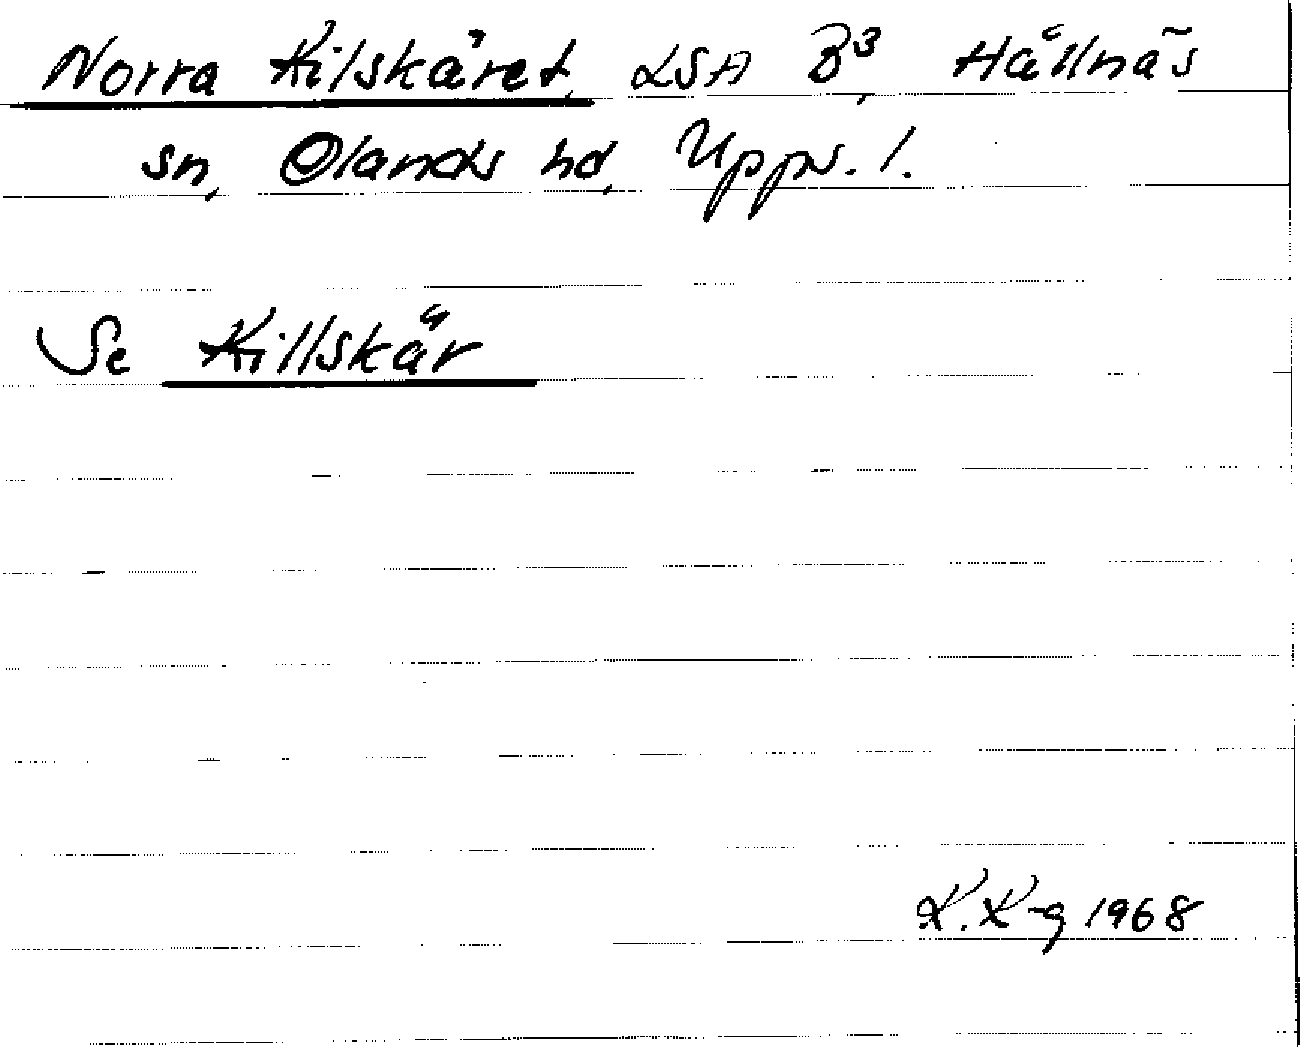 Norra Kilskäret, LSA B³, Hållnäs
sn, Olands hd, Upps. l.
Se Killskär
K. K-g 1968